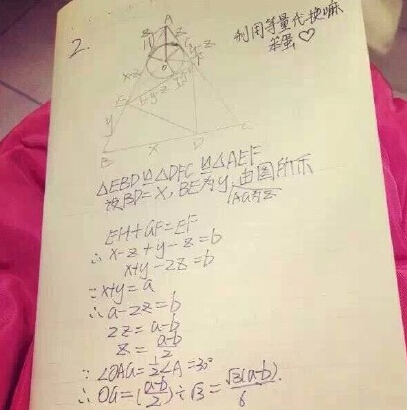 2.
利用等量代换嘛
笨蛋♡
A
B
X
D
C
y
E
△EBD≌△DFC≌△AEF
设BD=X,BE为y,由图所示
AG为z
EH+GF=EF
∴x-z+y-z=b
x+y-2z=b
∵x+y=a
∴a-2z=b
2z=a-b
z=\frac{a-b}{2}
∵∠OAG=\frac{1}{2}∠A=30°
∴OG=(\frac{a-b}{2})÷√3=\frac{√3(a-b)}{6}.